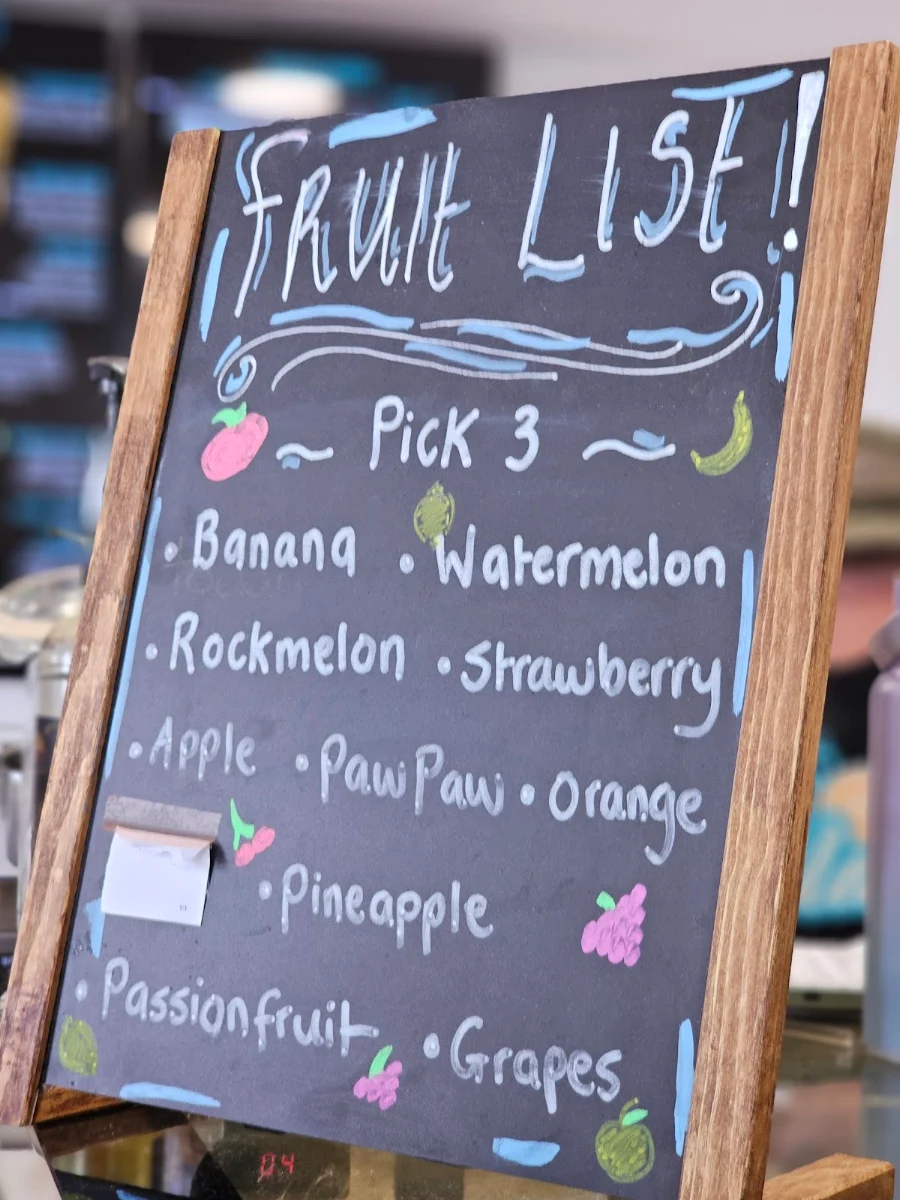 FRUIt LISt!
~ Pick 3 ~
• Banana • Watermelon
• Rockmelon • Strawberry
• Apple • PawPaw • Orange
• Pineapple
• Passionfruit • Grapes
04